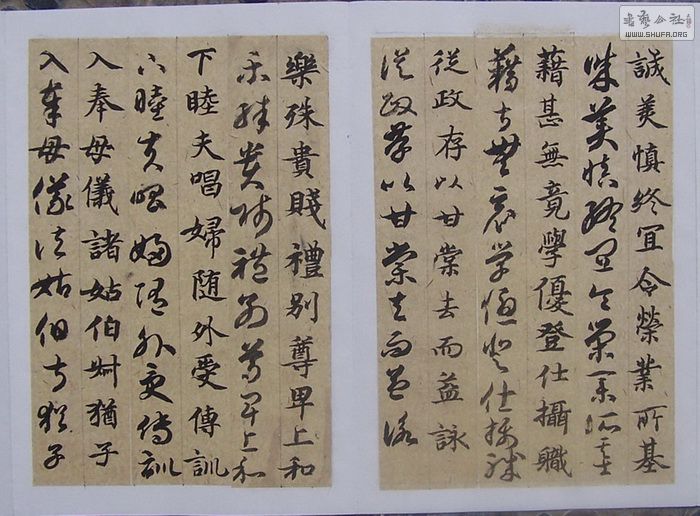 書藝公社
WWW.SHUFA.ORG
誠美慎終宜令榮業所基
誠美慎終宜令榮業所基
藉甚無竟學優登仕攝職
藉甚無竟學優登仕攝職
從政存以甘棠去而益詠
從政存以甘棠去而益詠
樂殊貴賤禮別尊卑上和
樂殊貴賤禮別尊卑上和
下睦夫唱婦隨外受傅訓
下睦夫唱婦隨外受傅訓
入奉母儀諸姑伯叔猶子
入奉母儀諸姑伯叔猶子